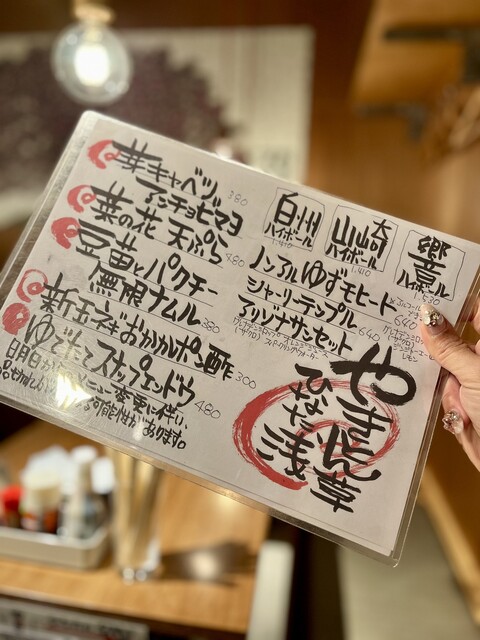 芽キャベツ
アンチョビマヨ 380
菜の花 天ぷら 480
豆苗とパクチー
無限ナムル 350
新玉ネギおかかポン酢 300
ゆでたてスナップエンドウ 480
メニュー変更に伴い、
可能性があります。
白州
ハイボール
1,410
山崎
ハイボール
1,410
響
ハイボール
ノンアルゆずモヒート 640
シャーリーテンプル 640
アリゾナサンセット 640
やきとん
ひなた
浅草